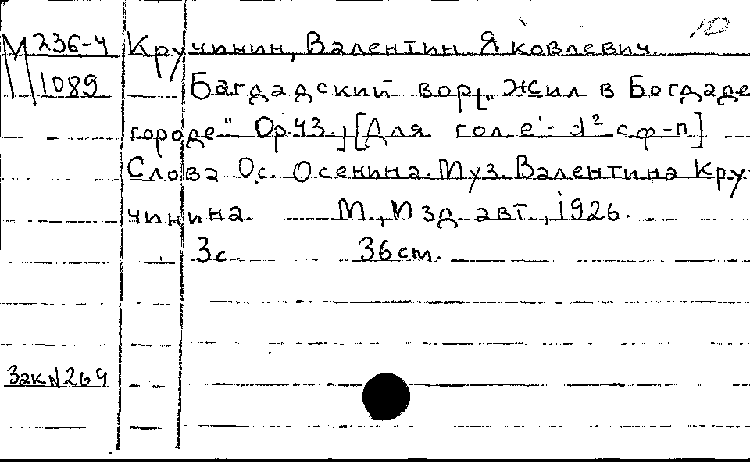 10
М 236-4 Кручинин, Валентин Яковлевич.
1089 Багдадский вор[„Жил в Богдаде
городе" Ор.43.] [Для гол. e'- d² с ф-п]
Слова Ос. Осенина. Муз. Валентина Кру-
чинина. М., Изд. авт., 1926.
3с 36 см.
Зак N 269